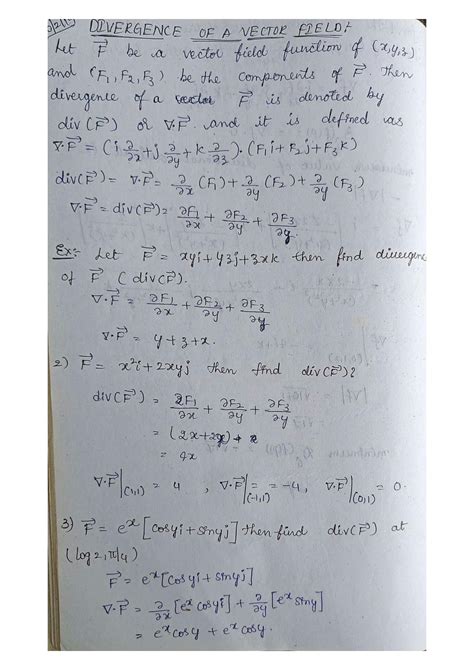 DIVERGENCE OF A VECTOR FIELD:
Let F⃗ be a vector field function of (x,y,z)
and (F₁, F₂, F₃) be the components of F⃗. Then
divergence of a F⃗ is denoted by
div(F⃗) or ∇·F⃗ and it is defined as
∇·F⃗ = (i ∂/∂x + j ∂/∂y + k ∂/∂z).(F₁i + F₂j + F₃k)
div(F⃗) = ∇·F⃗ = ∂/∂x (F₁) + ∂/∂y (F₂) + ∂/∂y (F₃)
∇·F⃗ = div(F⃗) = ∂F₁/∂x + ∂F₂/∂y + ∂F₃/∂y.
Ex:- Let F⃗ = xyi + yzj + zxk. then find divergence
of F⃗ (div(F⃗).
∇·F⃗ = ∂F₁/∂x + ∂F₂/∂y + ∂F₃/∂y
∇·F⃗ = y + z + x.
2) F⃗ = x²i + 2xyj then find div(F⃗)?
div(F⃗) = ∂F₁/∂x + ∂F₂/∂y + ∂F₃/∂y
= (2x+2x)
= 4x
∇·F⃗|(1,1) = 4 , ∇·F⃗|(-1,1) = -4, ∇·F⃗|(0,1) = 0.
3) F⃗ = eˣ[cosyi + sinyj] then find div(F⃗) at
(log2, π/4)
F⃗ = eˣ[cosyi + sinyj]
∇·F⃗ = ∂/∂x [eˣ cosyi] + ∂/∂y [eˣ siny]
= eˣcosy + eˣcosy.